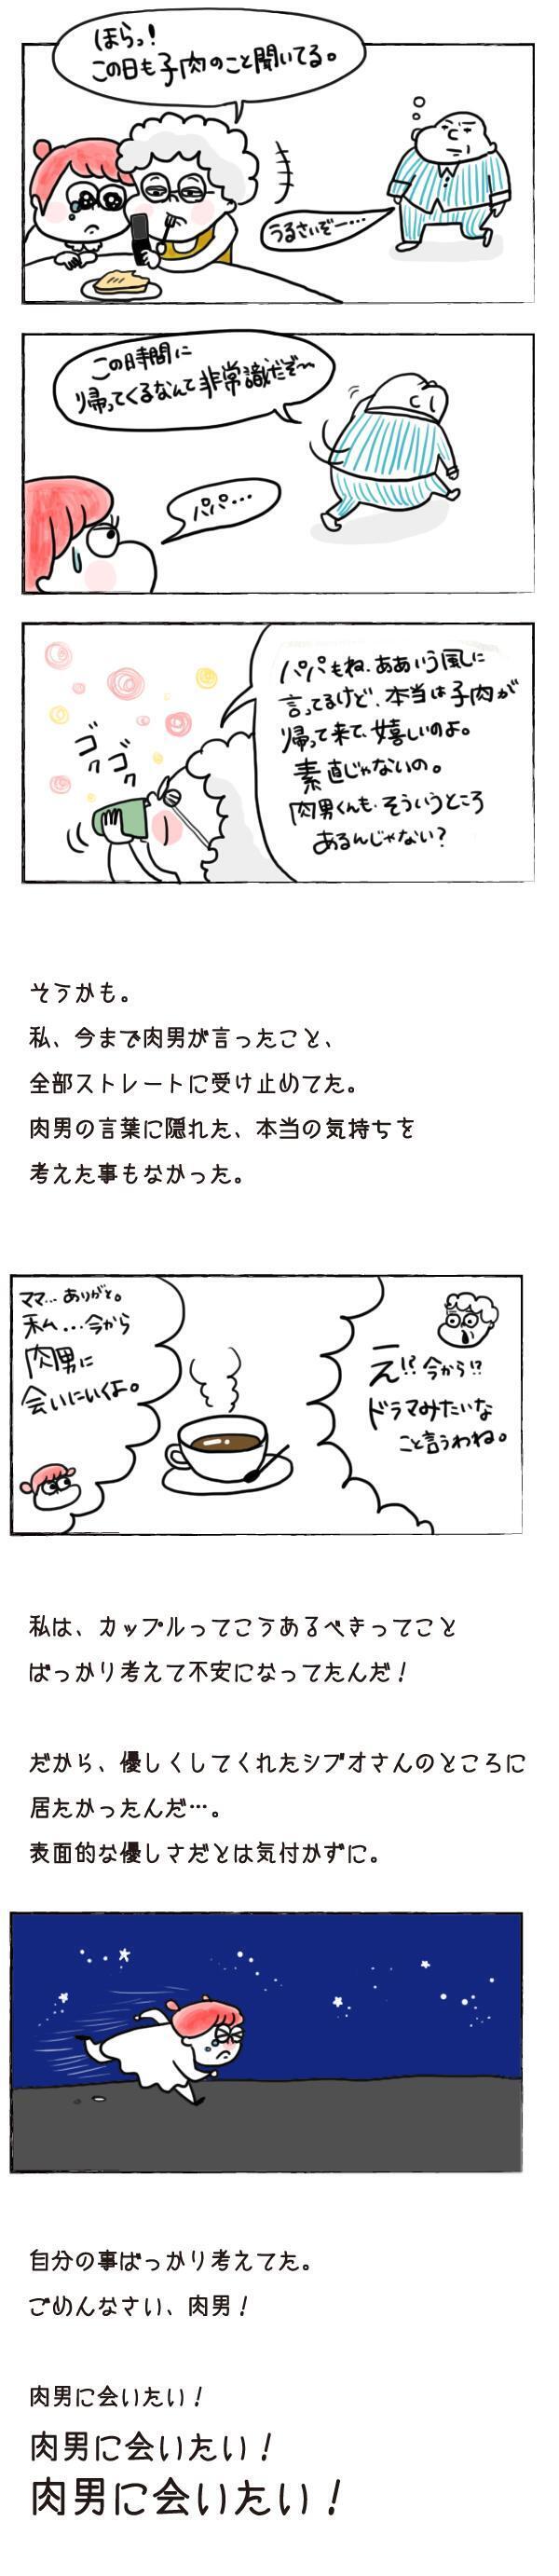 ほらっ!
この日も子肉のこと聞いてる。
うるさいぞー…
この時間に
帰ってくるなんて非常識だぞ〜
パパ…
パパもね、ああいう風に
言ってるけど、本当は子肉が
帰って来て、嬉しいのよ。
素直じゃないの。
肉男くんも、そういうところ
あるんじゃない?
ゴクゴク
そうかも。
私、今まで肉男が言ったこと、
全部ストレートに受け止めてた。
肉男の言葉に隠れた、本当の気持ちを
考えた事もなかった。
ママ… ありがと。
私…今から
肉男に
会いにいくよ。
え!? 今から!?
ドラマみたいな
こと言うわね。
私は、カップルってこうあるべきってこと
ばっかり考えて不安になってたんだ!
だから、優しくしてくれたシブオさんのところに
居たかったんだ…。
表面的な優しさだとは気付かずに。
自分の事ばっかり考えてた。
ごめんなさい、肉男!
肉男に会いたい!
肉男に会いたい!
肉男に会いたい!